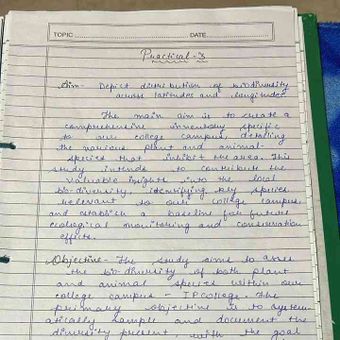 TOPIC DATE
Practical - 3
Aim - Depict distribution of biodiversity
across latitudes and longitudes
The main aim is to create a
comprehensive inventory specific
to our college campus, detailing
the various plant and animal
species that inhibit the area. This
study intends to contribute the
valuable insights into the local
bio-diversity, identifying key species
relevant to our college campus,
and establish a baseline for future
ecological monitoring and conservation
efforts.
Objective - The study aims to asses
the bio-diversity of both plant
and animal species within our
college campus - IPCollege. The
primary objective is to system-
atically sample and document the
diversity present, with the goal